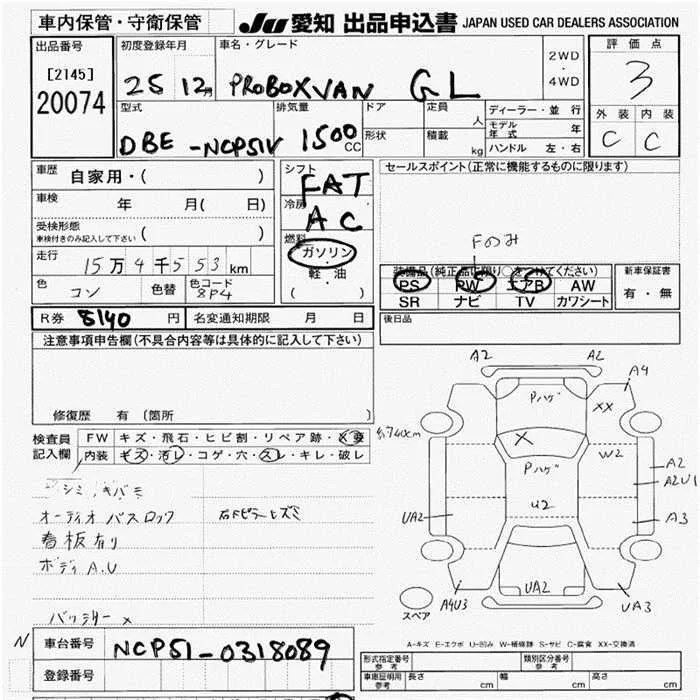 車内保管・守衛保管 JU 愛知 出品申込書 JAPAN USED CAR DEALERS ASSOCIATION
出品番号 初度登録年月 車名・グレード 2WD・4WD 評価点
[2145] 20074 25 12月 PROBOX VAN GL 3
型式 排気量 ドア 定員 人 ディーラー・並行 外装 内装
DBE-NCP51V 1500 CC 形状 積載 kg モデル年式 年 C C
ハンドル 左・右
車歴 自家用・( ) シフト FAT セールスポイント(正常に機能するものに限ります)
車検 年 月( 日) 冷房 AC
受検形態 車検付きのみ記入して下さい ( ) 燃料 ガソリン・軽油 ( )
Fのみ
走行 15万4千553km 装備品(純正品に限り○をつけてください) 新車保証書
色 コン 色替 色コード 8P4 PS PW エアB AW 有・無
SR ナビ TV カワシート
R券 8140 円 名変通知期限 月 日 後日品
注意事項申告欄(不具合内容等は具体的に記入して下さい)
修復歴 有 〔箇所 〕
検査員記入欄 FW キズ・飛石・ヒビ割・リペア跡・X要
内装 キズ・汚レ・コゲ・穴・スレ・キレ・破レ
オーディオ バスロック 右Fピラーヒズミ
看板有り
ボディA.U
バッテリー×
A2 A2
A4
Pハゲ XX
X W2
A2
Pハゲ A2U1
U2
UA2 A3
UA2
A4U3 UA3
スペア
A-キズ E-エクボ U-凹み W-補修跡 S-サビ C-腐食 XX-交換済
N 車台番号 NCP51-0318089
登録番号
形式指定番号 参考 類別区分番号 参考
車庫証明用 参考 長さ cm 幅 cm 高さ cm